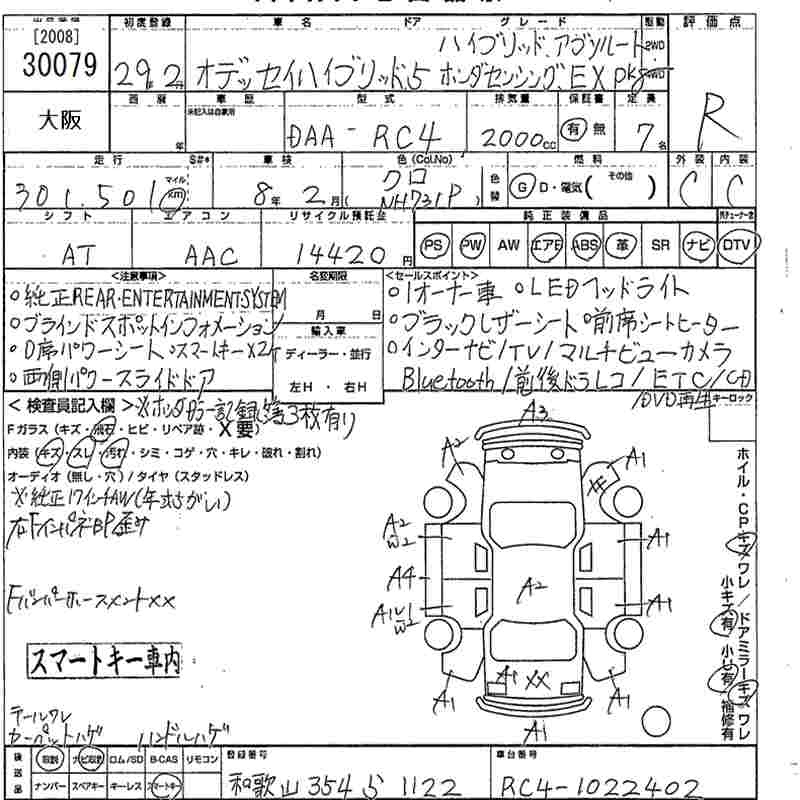 [2008]
30079
初度登録 車名 ドア グレード 駆動 評価点
29年2月 オデッセイハイブリッド 5 ハイブリッド.アブソルート 2WD
ホンダセンシング.EX pkg 4WD
R
大阪
西暦 車歴 型式 排気量 保証書 定員
未記入は自家用
年 DAA-RC4 2000cc 有 無 7名
走行 S#* 車検 色(Col.No) 燃料 その他 外装 内装
301.501 マイル km 8年 2月 クロ NH731P 色替 G D・電気( ) C C
シフト エアコン リサイクル預託金 純正装備品
AT AAC 14420円 PS PW AW エアB ABS 革 SR ナビ DTV
<注意事項>
○純正REAR.ENTERTAINMENTSYSTEM
○ブラインドスポットインフォメーション
○D席パワーシート ○スマートキー×2ケ
○両側パワースライドドア
名変期限
月 日
輸入車
ディーラー・並行
左H ・ 右H
<セールスポイント>
○1オーナー車 ○LEDヘッドライト
○ブラックレザーシート ○前席シートヒーター
○インターナビ/TV/マルチビューカメラ
Bluetooth/前後ドラレコ/ETC/CD
/DVD再生
キーロック
<検査員記入欄>
3枚有り
Fガラス(キズ・飛石・ヒビ・リペア跡・X要)
内装(キズ・スレ・汚れ・シミ・コゲ・穴・キレ・破れ・割れ)
オーディオ(無し・穴)/タイヤ(スタッドレス)
※純正17インチAW(年式ちがい)
右FインパネBP歪み
スマートキー車内
テールワレ
カーペットハゲ ハンドルハゲ
A3
A2
A1
A2
W2
A1
A4
A2
A1
W2
A1
A1
A1
XX
A1
A1
ホイル・CPキズワレ/ドアミラーキズワレ
小キズ有 小U有 補修有
後送品
取説 ナビ取説 ロム/SD B-CAS リモコン
ナンバー スペアキー キーレス スマートキー
登録番号
和歌山 354 ら 1122
車台番号
RC4-1022402